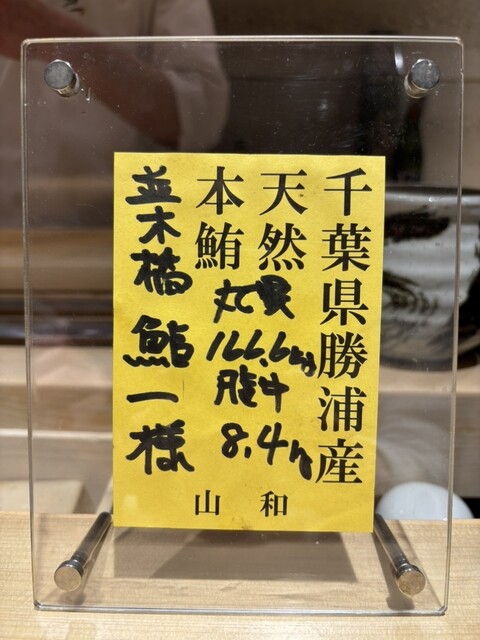 千葉県勝浦産
天然
本鮪
166.6kg
8.4kg
並木橋 鮨一様
山和